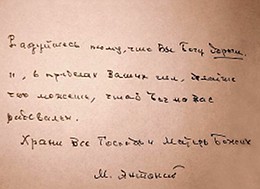 Радуйтесь тому, что Вы Богу дороги.
и, в пределах Ваших сил, делайте
что можете, чтоб Бог на Вас
радовался.
Храни Вас Господь и Матерь Божия
М. Антоний